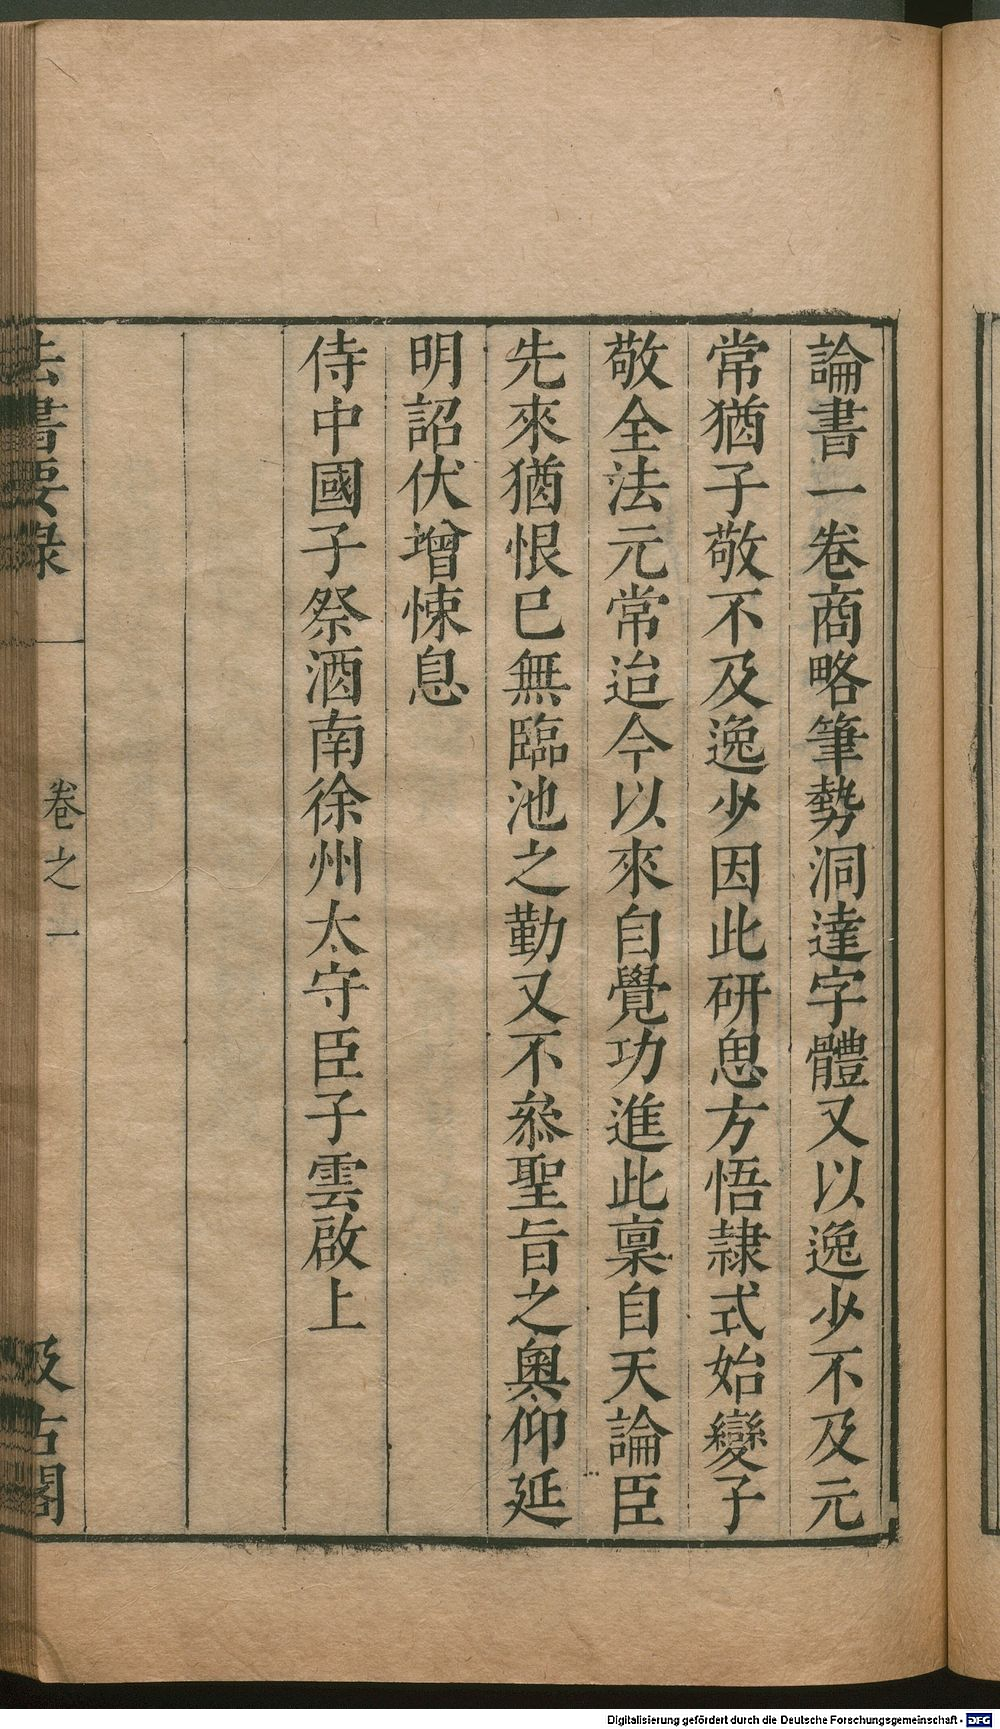 論書一卷商略筆勢洞達字體又以逸少不及元
常猶子敬不及逸少因此研思方悟隷式始變子
敬全法元常迨今以來自覺功進此稟自天論臣
先來猶恨已無臨池之勤又不叅聖旨之奧仰延
明詔伏增悚息
侍中國子祭酒南徐州太守臣子雲啟上
法書要錄
卷之一
汲古閣
Digitalisierung gefördert durch die Deutsche Forschungsgemeinschaft - DFG